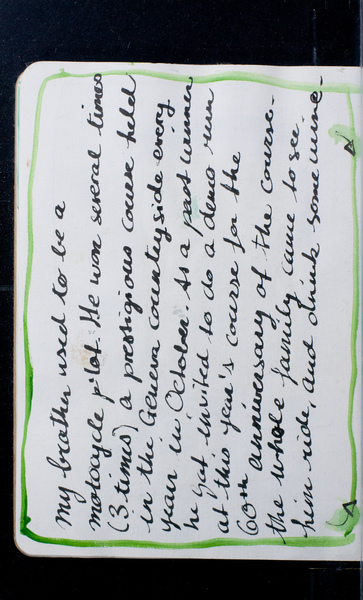 my brother used to be a
motocycle pilot. He won several times
(3 times) a prestigious course held
in the Geneva countryside every
year in October. As a past winner
he got invited to do a demo run
at this year's course for the
60th anniversary of the course.
the whole family came to see
him ride, and drink some wine.